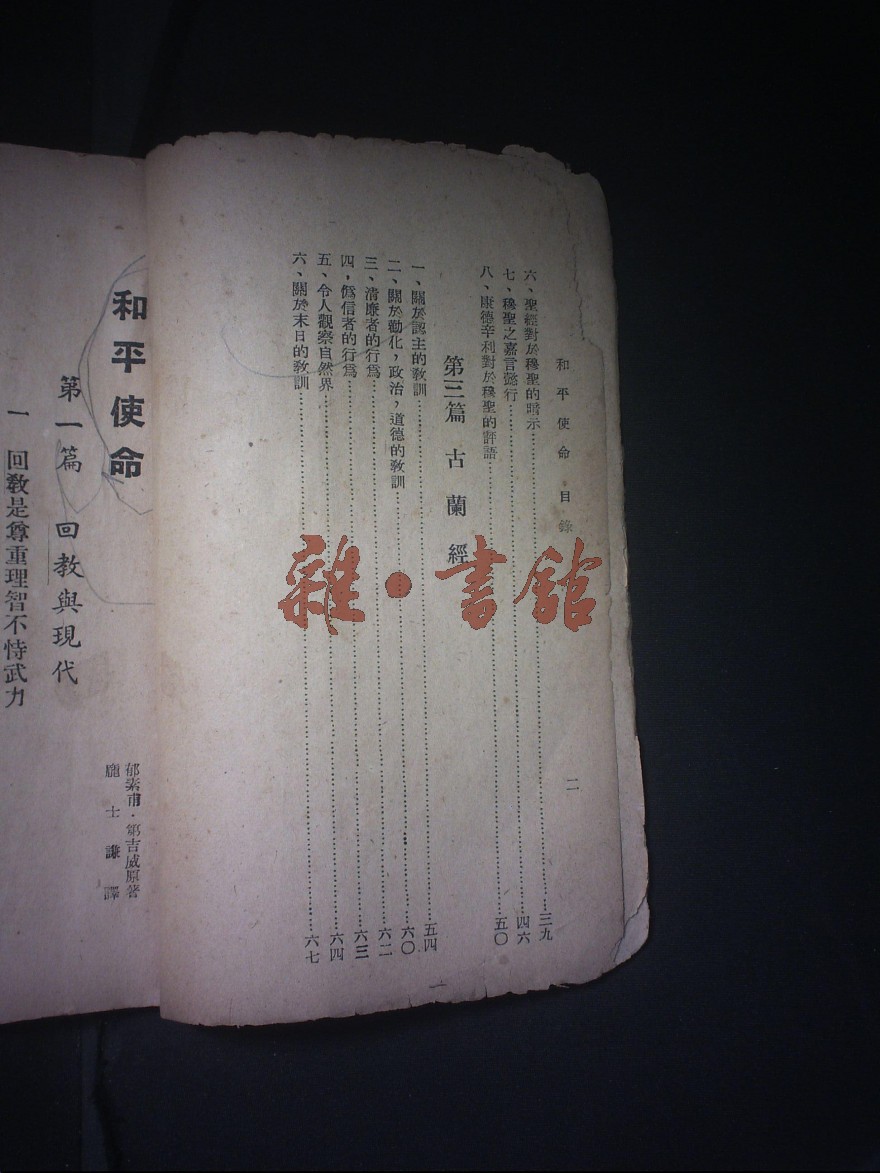 和平使命 目錄
二
六、聖經對於穆聖的暗示……三九
七、穆聖之嘉言懿行……四六
八、康德辛利對於穆聖的評語……五〇
第三篇 古蘭經
一、關於認主的教訓……五四
二、關於勸化，政治，道德的教訓……六〇
三、清廉者的行為……六二
四，偽信者的行為……六三
五、令人觀察自然界……六四
六、關於末日的教訓……六七
和平使命
郁素甫·第吉威原著
龐士謙譯
第一篇 回教與現代
一 回教是尊重理智不恃武力
雜·書館